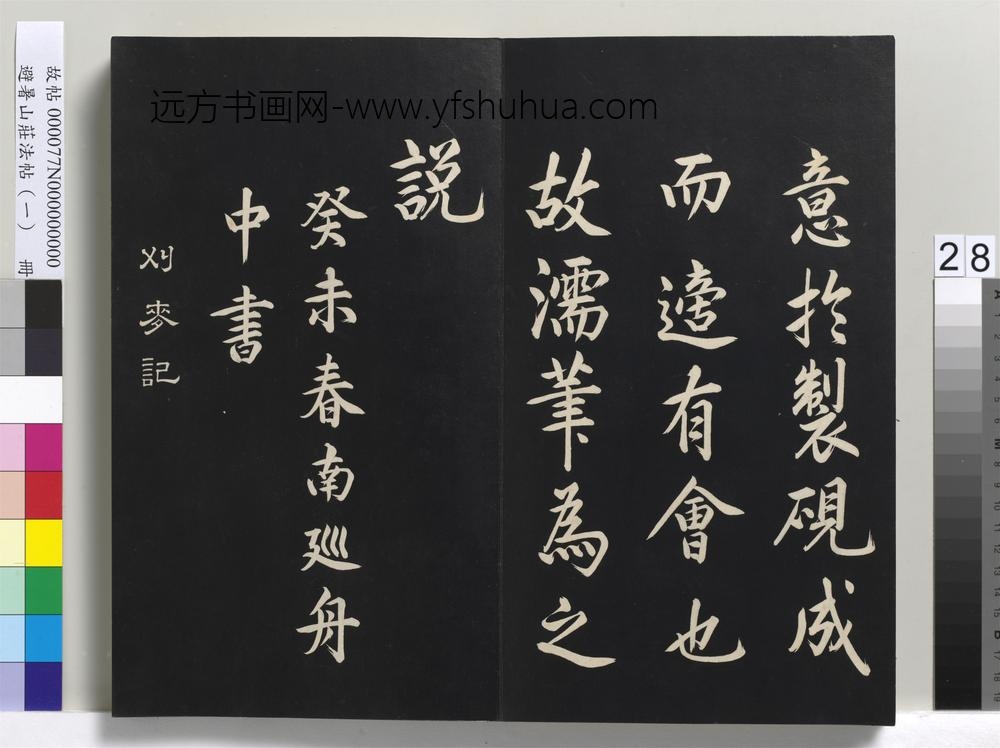 意於製硯成
而適有會也
故濡筆為之
說
癸未春南巡舟
中書
刈麥記
远方书画网-www.yfshuhua.com
故帖 000077N000000000
避暑山莊法帖(一) 冊
28